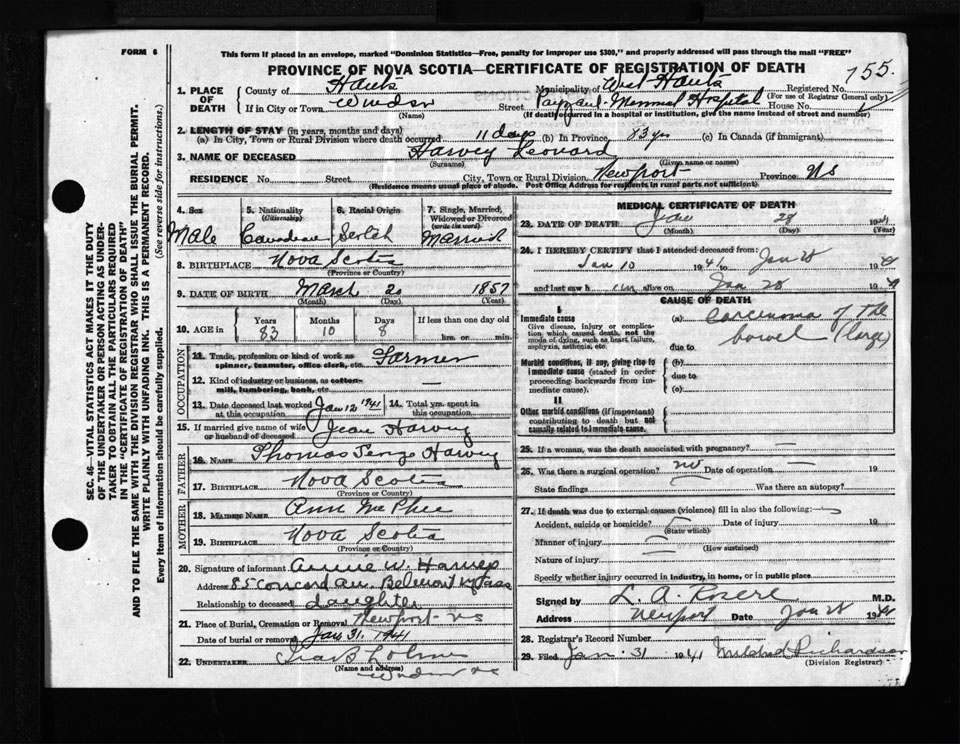 FORM 6
This form if placed in an envelope, marked "Dominion Statistics—Free, penalty for improper use $300," and properly addressed will pass through the mail "FREE"
PROVINCE OF NOVA SCOTIA—CERTIFICATE OF REGISTRATION OF DEATH
155.
1. PLACE OF DEATH
County of Hants
Municipality of West Hants
Registered No.
(For use of Registrar General only)
If in City or Town Windsor
(Name)
Street Payzant Memorial Hospital House No.
(If death occurred in a hospital or institution, give the name instead of street and number)
2. LENGTH OF STAY (in years, months and days)
(a) In City, Town or Rural Division where death occurred 11 days (b) In Province 83 yrs (c) In Canada (if immigrant)
3. NAME OF DECEASED Harvey Leonard
(Surname) (Given name or names)
RESIDENCE No. Street City, Town or Rural Division Newport Province NS
(Residence means usual place of abode. Post Office Address for residents in rural parts not sufficient)
4. Sex Male
5. Nationality (Citizenship) Canadian
6. Racial Origin Scotch
7. Single, Married, Widowed or Divorced (write the word) Married
8. BIRTHPLACE Nova Scotia
(Province or Country)
9. DATE OF BIRTH March 20 1857
(Month) (Day) (Year)
10. AGE in Years 83 Months 10 Days 8 If less than one day old hrs. or min.
OCCUPATION
11. Trade, profession or kind of work as spinner, teamster, office clerk, etc. Farmer
12. Kind of industry or business, as cotton-mill, lumbering, bank, etc. —
13. Date deceased last worked at this occupation Jan 12 1941
14. Total yrs. spent in this occupation
15. If married give name of wife or husband of deceased Jean Harvey
FATHER
16. NAME Thomas Harvey
17. BIRTHPLACE Nova Scotia
(Province or Country)
MOTHER
18. MAIDEN NAME Ann McPhee
19. BIRTHPLACE Nova Scotia
(Province or Country)
20. Signature of informant Annie W. Harvey
Address 85 Concord Av. Belmont Mass
Relationship to deceased daughter
21. Place of Burial, Cremation or Removal Newport NS
Date of burial or removal Jan 31, 1941
22. UNDERTAKER Ira B
(Name and address)
Windsor NS
MEDICAL CERTIFICATE OF DEATH
23. DATE OF DEATH Jan 28 1941
(Month) (Day) (Year)
24. I HEREBY CERTIFY that I attended deceased from:
Jan 10 1941 to Jan 28 1941
and last saw h im alive on Jan 28 1941
CAUSE OF DEATH
I
Immediate cause
Give disease, injury or complication which caused death, not the mode of dying, such as heart failure, asphyxia, asthenia, etc.
(a) carcinoma of the bowel (large)
due to
Morbid conditions, if any, giving rise to immediate cause (stated in order proceeding backwards from immediate cause).
(b)
due to
(c)
II
Other morbid conditions (if important) contributing to death but not causally related to immediate cause.
25. If a woman, was the death associated with pregnancy?
26. Was there a surgical operation? no Date of operation — 19
State findings Was there an autopsy?
27. If death was due to external causes (violence) fill in also the following:
Accident, suicide or homicide? Date of injury 19
(State which)
Manner of injury
(How sustained)
Nature of injury
Specify whether injury occurred in industry, in home, or in public place
Signed by L. A. M.D.
Address Newport Date Jan 28 1941
28. Registrar's Record Number
29. Filed Jan. 31 1941 Mildred Richardson
(Division Registrar)
SEC. 46—VITAL STATISTICS ACT MAKES IT THE DUTY OF THE UNDERTAKER OR PERSON ACTING AS UNDERTAKER TO OBTAIN ALL THE PARTICULARS REQUIRED IN THE "CERTIFICATE OF REGISTRATION OF DEATH" AND TO FILE THE SAME WITH THE DIVISION REGISTRAR WHO SHALL ISSUE THE BURIAL PERMIT.
(See reverse side for instructions.)
WRITE PLAINLY WITH UNFADING INK. THIS IS A PERMANENT RECORD.
Every item of information should be carefully supplied.